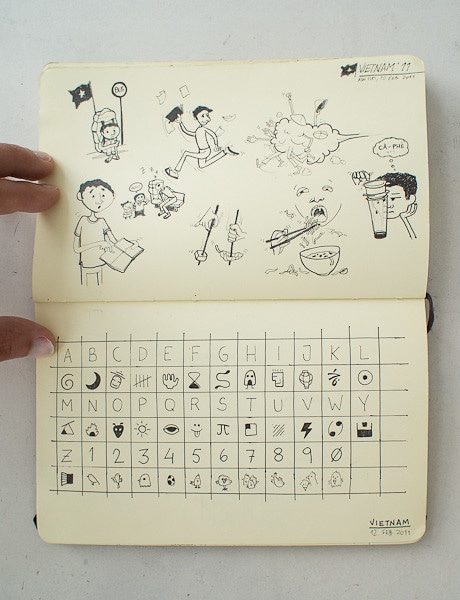 VIETNAM '11
FEB. 2011
CÀ-PHÊ
A B C D E F G H I J K L
M N O P Q R S T U V W Y
Z 1 2 3 4 5 6 7 8 9 Ø
VIETNAM
12. FEB 2011